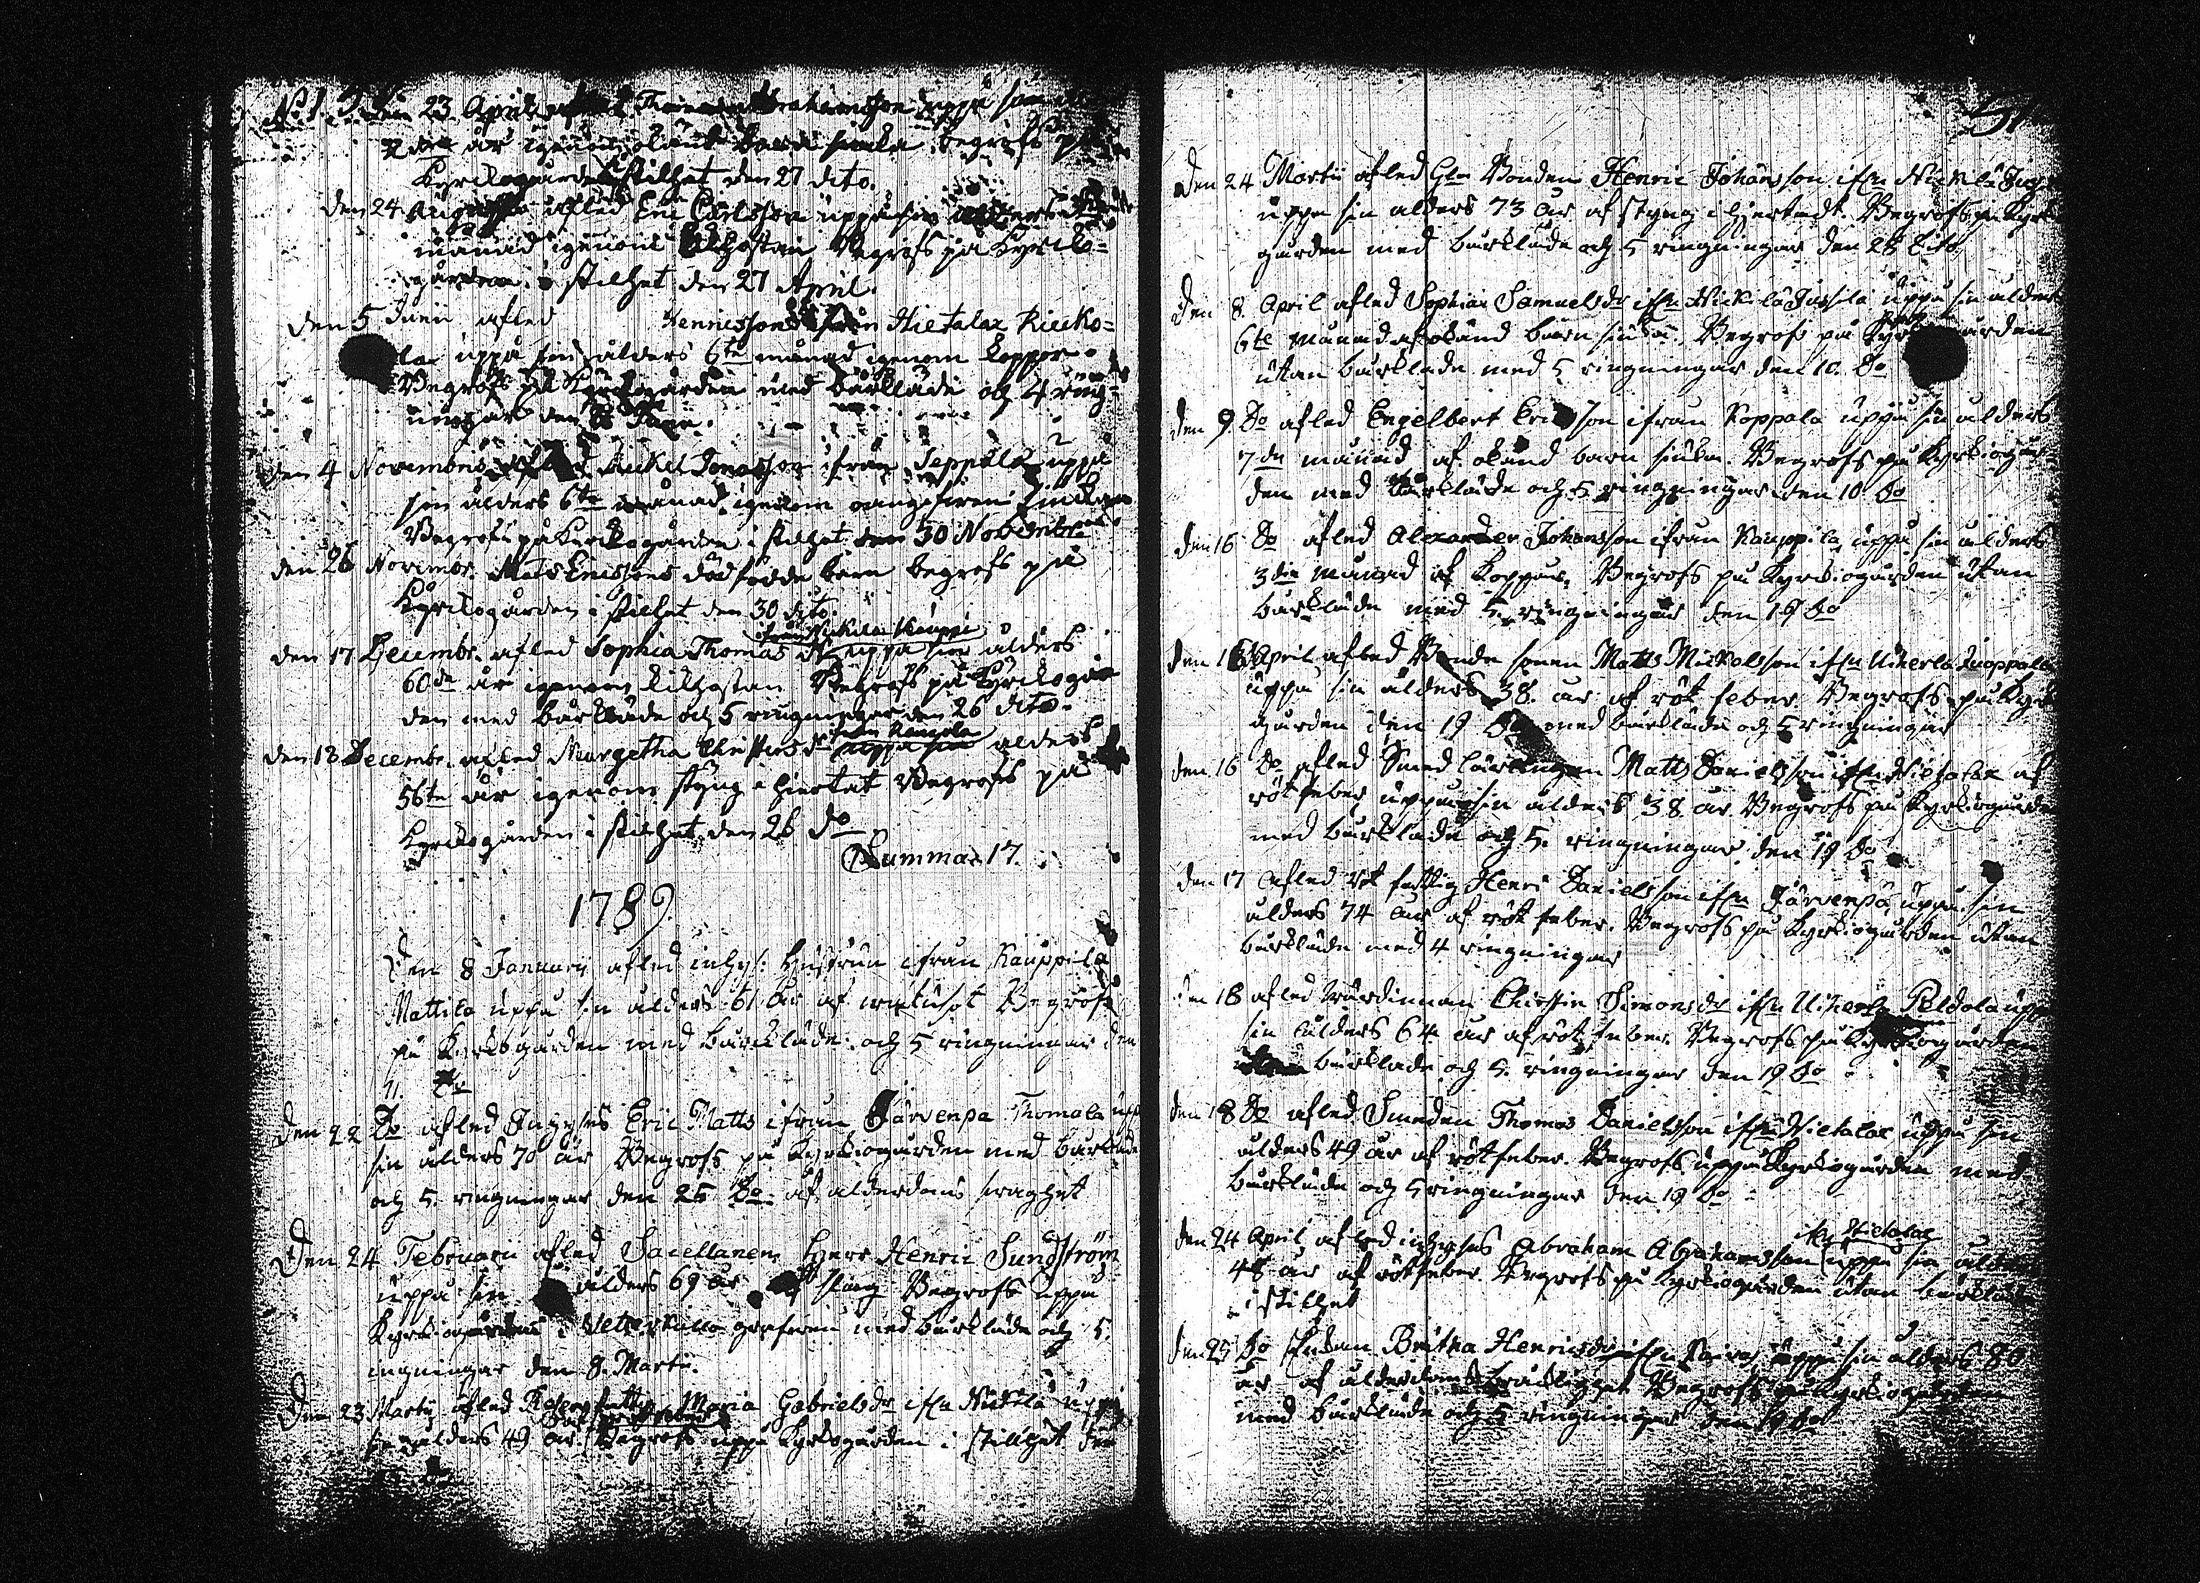 23 April Thomas Abrahamsson uppå sin
år igenom okänd barn siuka begrofs på
Kyrckogården i stilhet den 27 dito.
Den 24 afled Eric Carlsson uppå sin
månad igenom Kikhostan Begrofs på Kyrcko=
gården i stilhet den 27 April.
Den 5 Junii afled Henricsson ifrån Hietalax Riecko=
la uppå sin ålders 6te månad igenom koppor
Begrofs på Kyrckogården med bårkläde och 4 ring=
ningar den
Den 4 Novembris afled Mickel Jonasson ifrån Seppälä uppå
sin ålders 6te månad igenom oangifven siukdom
Begrofs på Kyrckogården i stilhet den 30 Novembr
den 26 Novembr. Mats Ericssons dödfödde barn begrofs på
Kyrckogården i stilhet den 30 dito.
ifrån Nickila Kauppi
den 17 Decembr. afled Sophia Thomas dr uppå sin ålders
60de år igenom kikhostan Begrofs på Kyrckogår
den med bårkläde och 5 ringningar den 26 dito.
ifrån
den 18 Decembr. afled Margetha Christers dr uppå sin ålders
56te år igenom styng i hiertat Begrofs på
Kyrckogården i stilhet den 26 do
Summa 17.
1789
Den 8 Januarij afled inhys: hustrun ifrån Kauppila
Mattila uppå sin ålders 61 år af wattusot Begrofs
på Kyrckogården med bårkläde och 5 ringningar den
11. Do
Den 22 Do afled Inhyses Eric Matts ifrån Järvenpä Thomala upp
sin ålders 70 år Begrofs på Kyrkiogården med bårkläde
och 5. ringningar den 25 Do af ålderdoms swaghet
Den 24 Februarii afled Sacellanen Herr Henric Sundström
uppå sin ålders 69 år af slag Begrofs uppå
Kyrkiogården i Weterkulla grafven med bårkläde och 5.
ingningar den 8. Martii
Den 23 Martij afled Maria Gabrielsdr ifrn Nickila uppå
sin ålders 49 år Begrofs uppå Kyrkogården i stillhet den
Den 24 Martii afled Gln Bonden Henric Johansson ifrn Nickilä
uppå sin ålders 73 år af styng i hjertadt. Begrofs på Kyrkio
gården med bårkläde och 5 ringningar den 28 Dito
Den 8. April afled Sophia Samuelsdr ifrn Nickilä Jussila uppå sin ålders
6te månad af okänd barn siuka. Begrofs på Kyrkiogården
utan bårkläde med 5 ringningar den 10. Do
Den 9. Do afled Engelbert Ericsson ifrån Koppala uppå sin ålders
7de månad af okänd barn siuka. Begrofs på Kyrkiogår=
den med bårkläde och 5 ringningar den 10 Do
den 16 Do afled Alexander Johansson ifrån Kauppila uppå sin ålders
3die månad af Koppor. Begrofs på Kyrkiogården utan
bårkläde med 5 ringningar den 19 Do
Den 16 April afled Bonde sonen Matts Mickelsson ifrn Uikerla Kuoppala
uppå sin ålders 38. år af röt feber Begrofs på Kyrk
gården den 19 Do med bårkläde och 5 ringningar
Den 16 Do afled Smed lärlingen Matts Danielsson ifrn Hietalax af
rötfeber uppå sin ålders 38 år Begrofs på Kyrkiogården
med bårkläde och 5. ringningar den 19 Do
Den 17 afled Rot fattig Henric Danielsson ifrn Järvenpä uppå sin
ålders 74 år af röt feber. Begrofs på Kyrkiogården utan
bårkläde med 4 ringningar
Den 18 afled Wärdinnan Christin Simonsdr ifrn Uikerla Peldola upp
sin ålders 64 år af röt feber. Begrofs på Kyrkiogården
bårkläde och 5. ringningar den 19 Do
Den 18 Do afled Smeden Thomas Danielsson ifrn Hietalax uppå sin
ålders 49 år af rötfeber. Begrofs uppå Kyrkiogården med
bårkläde och 5 ringningar den 19 Do
ifrn Hietalax
Den 24 April afled inhyses Abraham Abrahamsson uppå sin ålders
48 år af rötfeber Begrofs på Kyrkiogården utan bårkläde
i stillhet
Den 25 Do Enkan Britha Henricsdr ifrn uppå sin ålders 80
år af ålderdoms bräcklighet Begrofs på Kyrkiogården
med bårkläde och 5 ringningar den